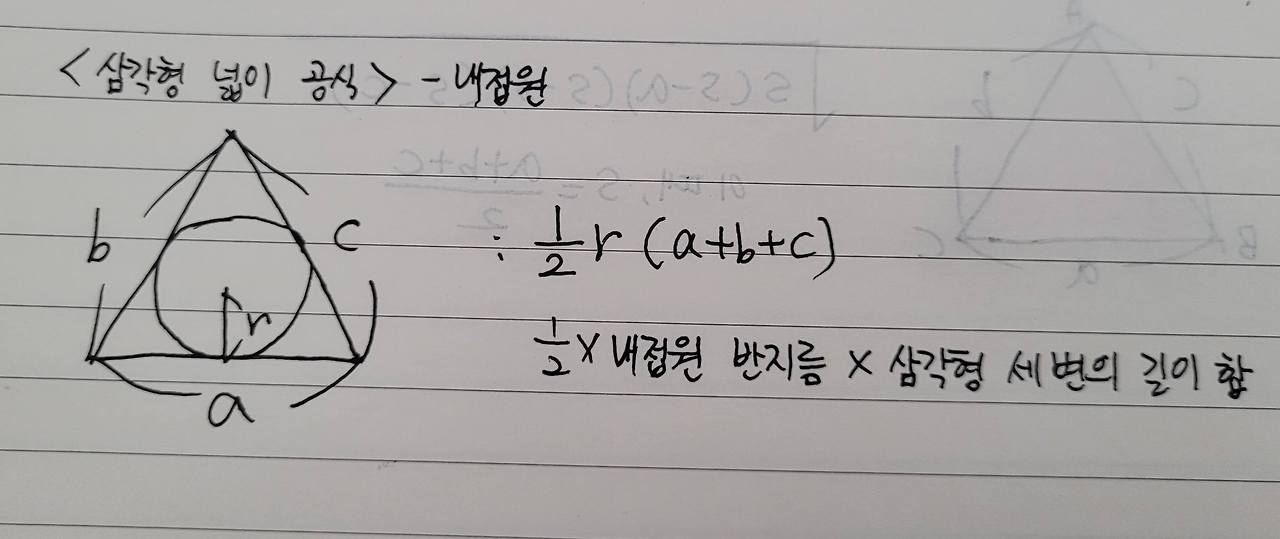 <삼각형 넓이 공식> - 내접원
b
c
: 1/2 r (a+b+c)
r
1/2 × 내접원 반지름 × 삼각형 세 변의 길이 합
a